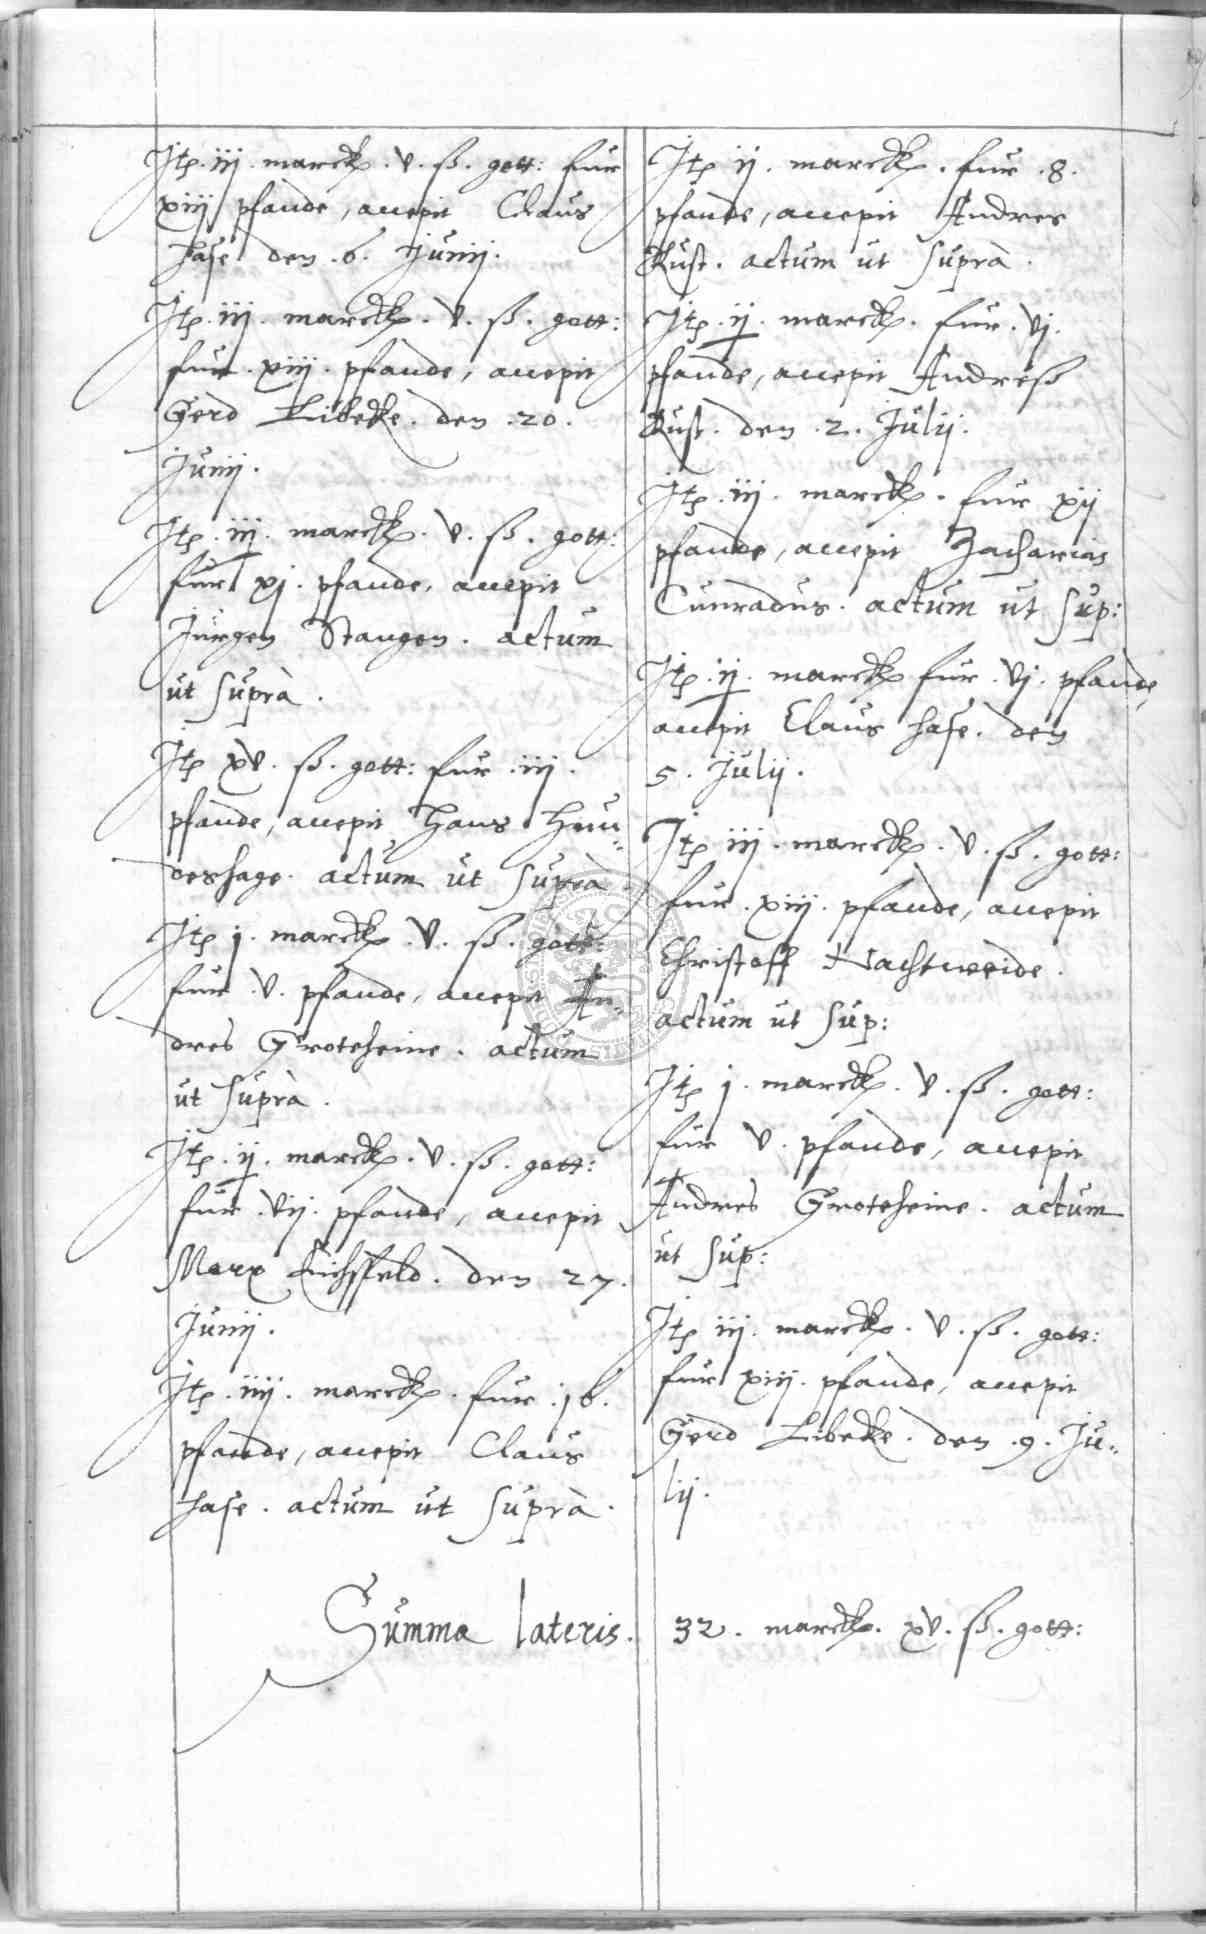 Itē. iij. marck. v. ß. gott: fur
xiij pfande, accepit Claus
Hase den .6. Junij.
Itē. iij. marck. v. ß. gott:
fur. xiij. pfande, accepit
Gerd Libeke. den .20.
Junij.
Itē. iij. marck. v. ß. gott:
fur xj. pfande, accepit
Jürgen Stangen. actum
ut suprà.
Itē xv. ß. gott: fur .iij.
pfande, accepit Hans Hun-
deshage. actum ut suprà.
Itē j. marck. v. ß. gott:
fur v. pfande, accepit An-
dres Groteheine. actum
ut suprà.
Itē. ij. marck. v. ß. gott:
fur .vij. pfande, accepit
Marx Eichsfeld. den 27.
Junij.
Itē. iiij. marck. fur .16.
pfande, accepit Claus
Hase. actum ut suprà.
Itē ij. marck. fur .8.
pfande, accepit Andres
Rust. actum ut suprà.
Itē. ij. marck. fur. vj.
pfande, accepit Andreß
Rust. den .2. Julij.
Itē. iij. marck. fur xij
pfande, accepit Zacharias
Cunradus. actum ut sup:
Itē. ij. marck fur .vj. pfande,
accepit Claus Hase. den
5. Julij.
Itē iij. marck. v. ß. gott:
fur. xiij. pfande, accepit
Christoff Nachtweide.
actum ut sup:
Itē j. marck. v. ß. gott:
fur v. pfande, accepit
Andres Groteheine. actum
ut sup:
Itē iij. marck. v. ß. gott:
fur xiij. pfande, accepit
Gerd Libeke. den .9. Ju-
lij.
Summa lateris. 32. marck. xv. ß. gott: